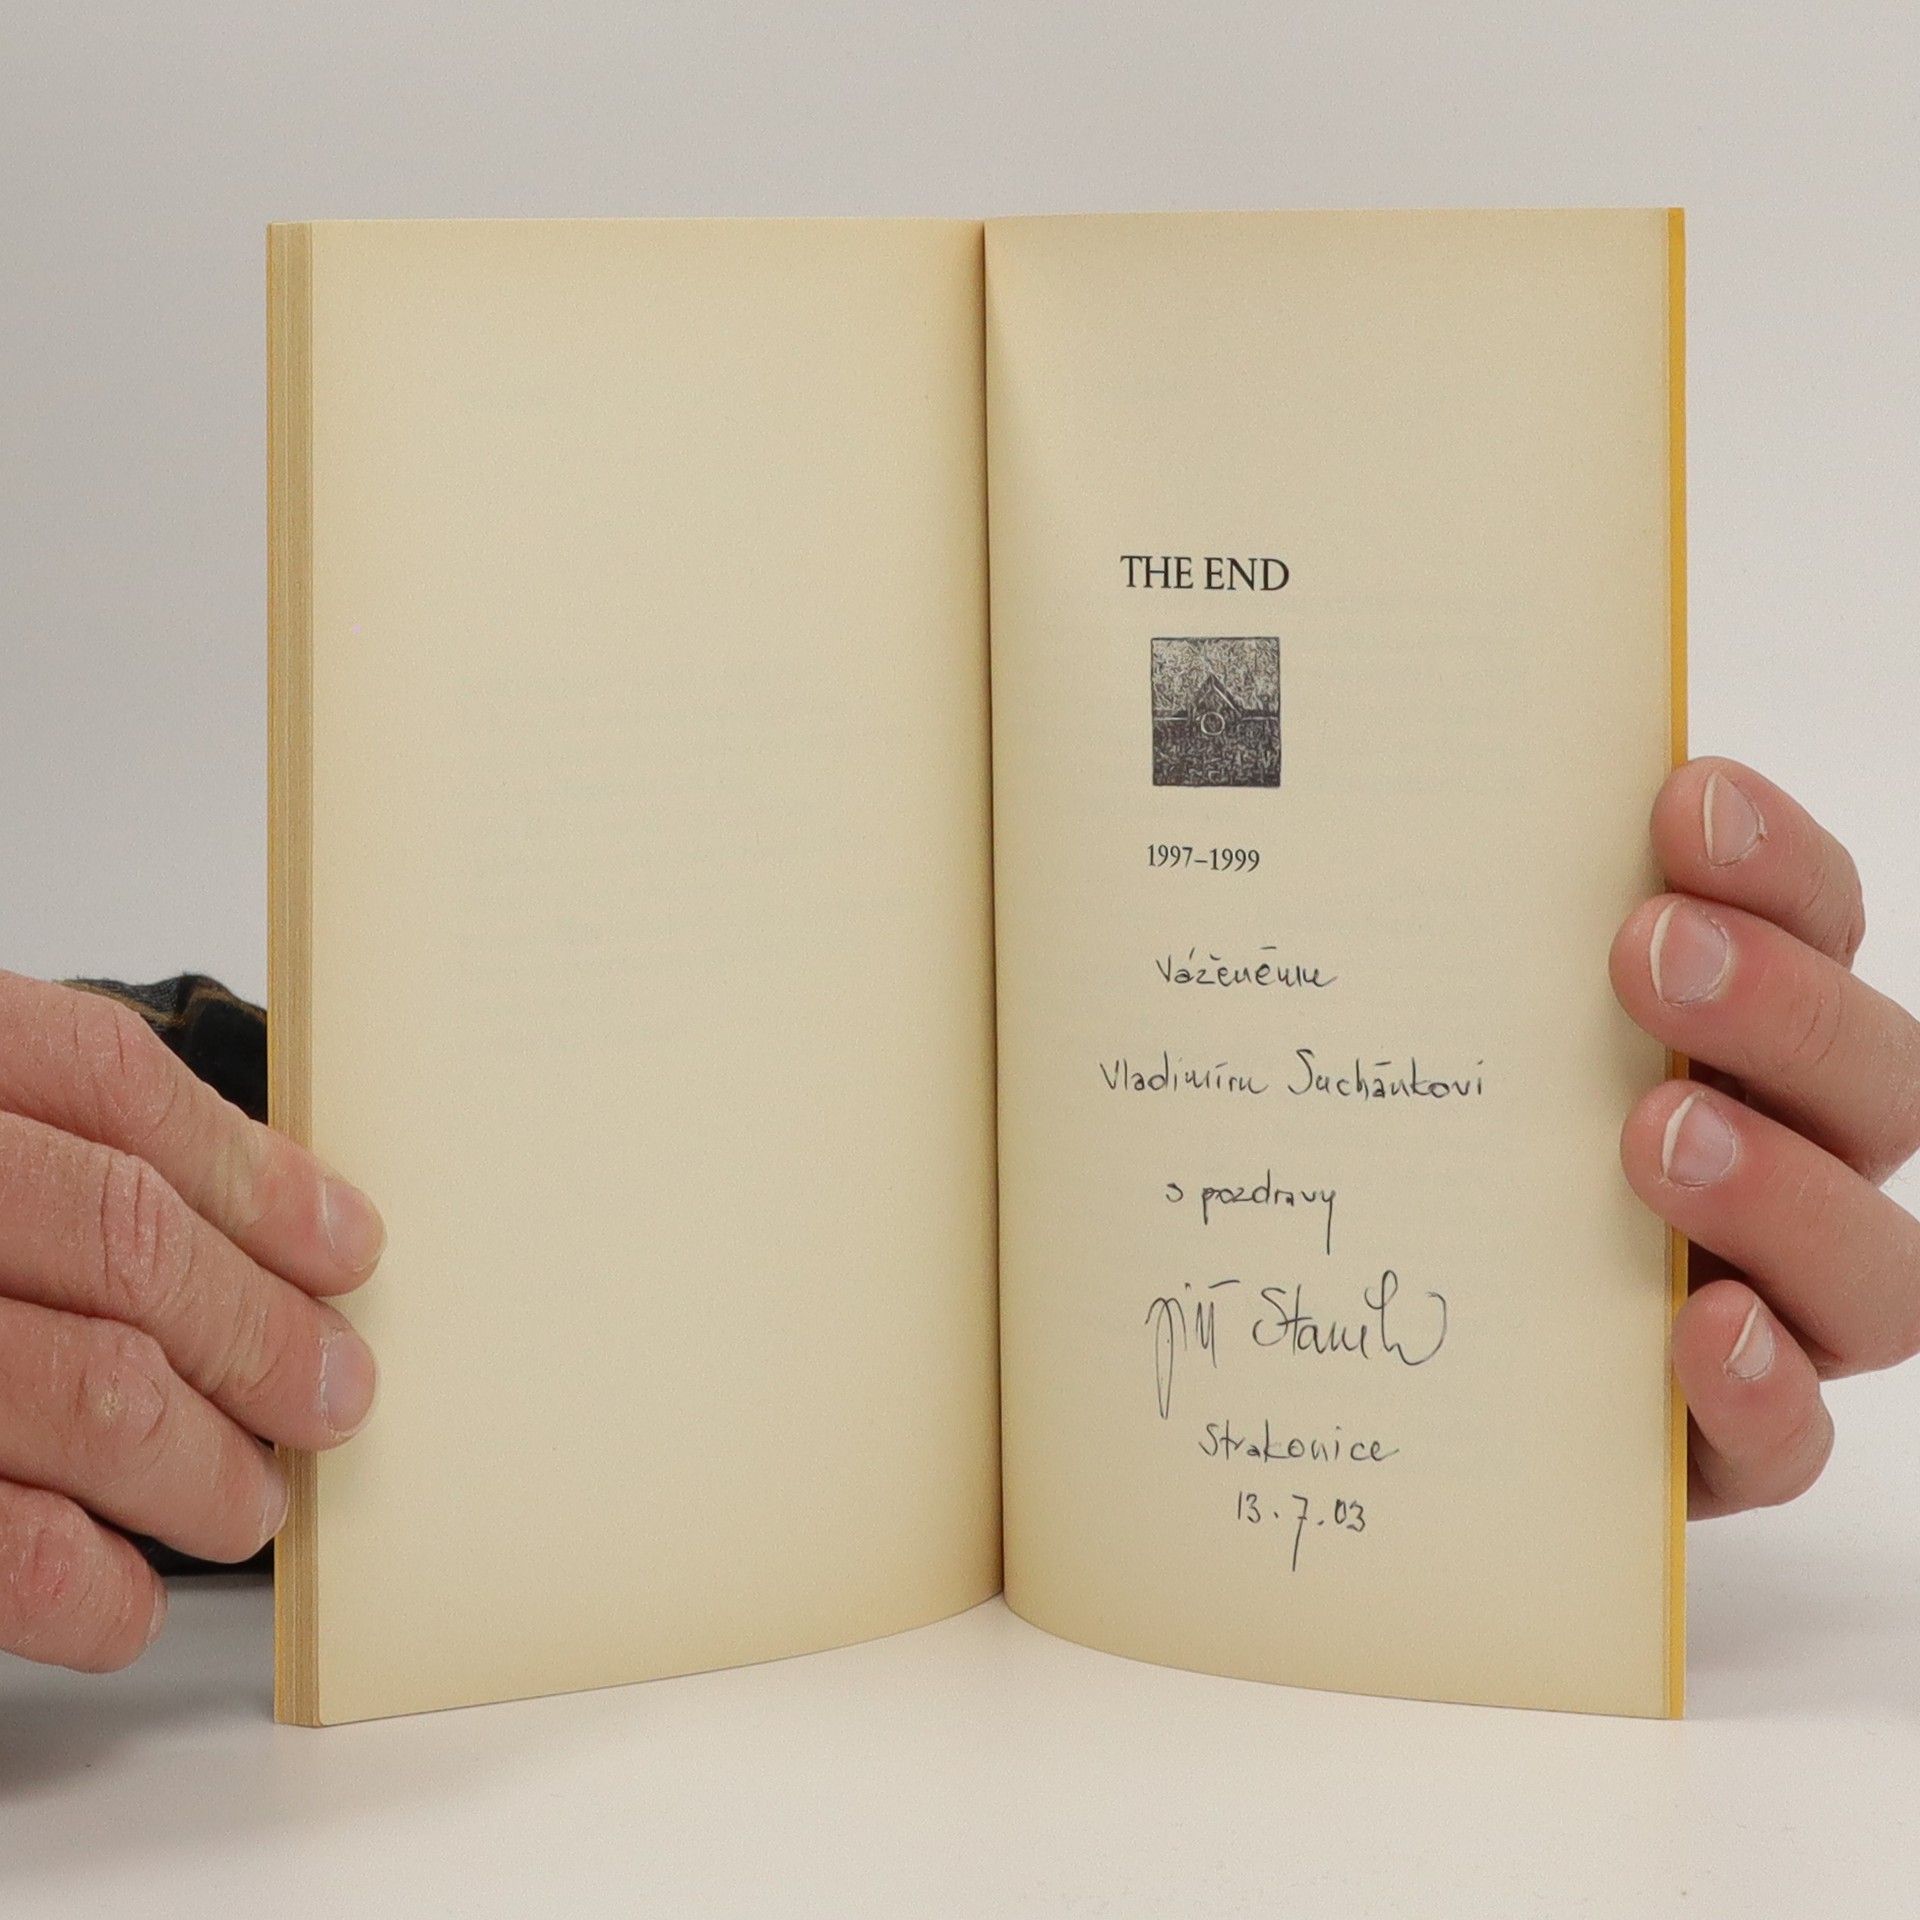 THE END
1997–1999
Váženému
Vladimíru Suchánkovi
s pozdravy
Jiří Staněk
Strakonice
13.7.03